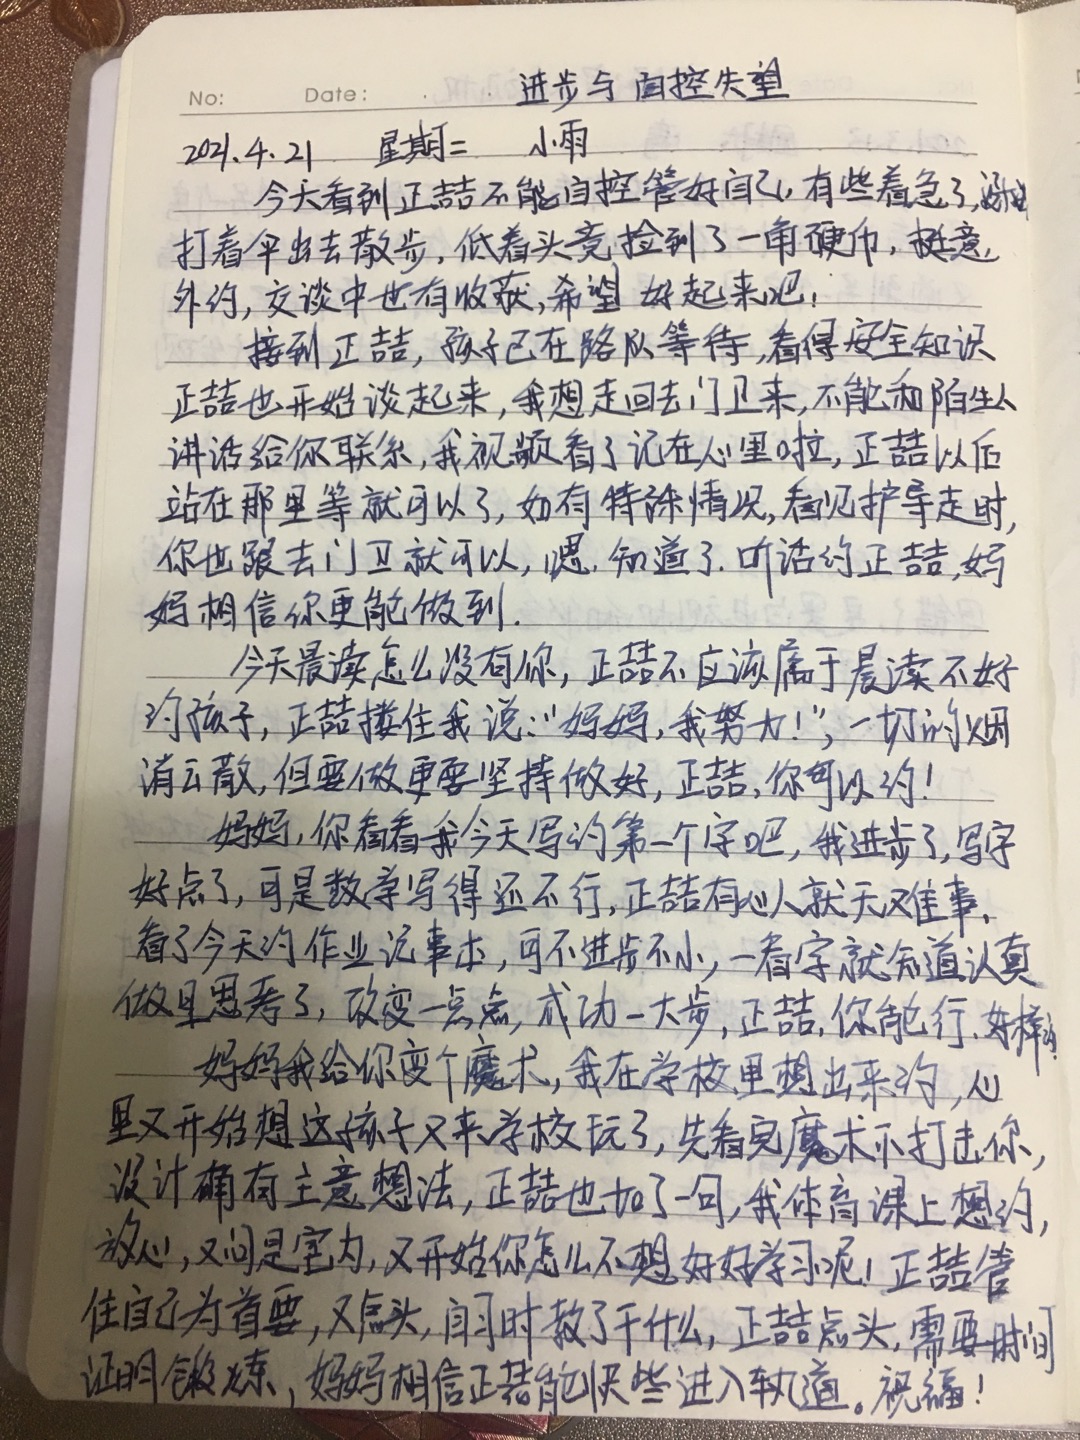 No: Date: 进步与自控失望
2021.4.21 星期二 小雨
今天看到正喆不能自控管好自己,有些着急了,
打着伞出去散步,低着头竟捡到了一角硬币,挺意
外的,交谈中也有收获,希望好起来吧!
接到正喆,孩子已在路队等待,看得安全知识
正喆也开始谈起来,我想走回去门卫来,不能和陌生人
讲话给你联系,我视频看了记在心里啦,正喆以后
站在那里等就可以了,如有特殊情况,看见护导走时,
你也跟去门卫就可以,嗯.知道了.听话的正喆,妈
妈相信你更能做到.
今天晨读怎么没有你,正喆不应该属于晨读不好
的孩子,正喆搂住我说:"妈妈,我努力!",一切的烟
消云散,但要做更要坚持做好,正喆,你可以的!
妈妈,你看看我今天写的第一个字吧,我进步了,写字
好点了,可是数学写得还不行,正喆有心人就无难事.
看了今天的作业记事本,可不进步不小,一看字就知道认真
做且思考了,改变一点点,成功一大步,正喆,你能行.好样的.
妈妈我给你变个魔术,我在学校里想出来的,心
里又开始想这孩子又来学校玩了,先看完魔术不打击你,
设计确有主意想法,正喆也加了一句,我体育课上想的,
放心,又问是室内,又开始你怎么不想好好学习呢!正喆管
住自己为首要,又点头,自习时教了干什么,正喆点头,需要时间
证明锻炼,妈妈相信正喆能快些进入轨道。祝福!